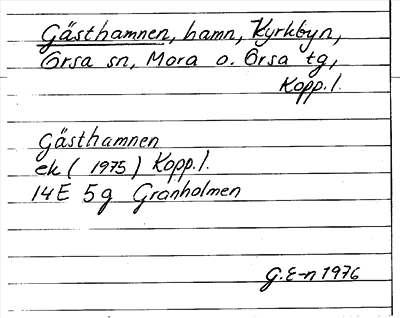 Gästhamnen, hamn, Kyrkbyn,
Orsa sn, Mora o. Orsa tg,
Kopp. l.
Gästhamnen
ek ( 1975 ) Kopp. l.
14E 5g Granholmen
G. E-n 1976